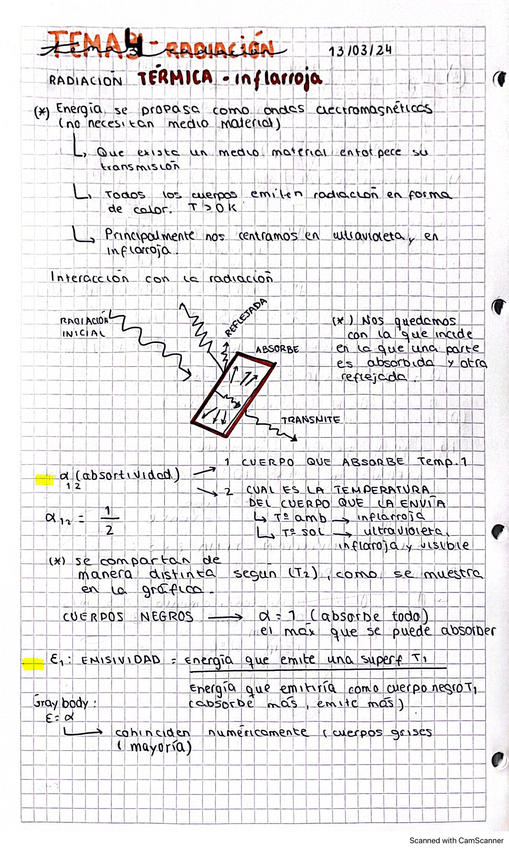 TEMA 4 - RADIACIÓN
13/03/24
RADIACIÓN TÉRMICA - inflarroja
(*) Energía se propaga como ondas electromagnéticas
(no necesitan medio material)
↳ Que exista un medio material entorpece su
transmisión
↳ Todos los cuerpos emiten radiación en forma
de calor. T > 0 K
↳ Principalmente nos centramos en ultravioleta y en
inflarroja.
Interacción con la radiación
RADIACIÓN
INICIAL
REFLEJADA
ABSORBE
TRANSMITE
(*) Nos quedamos
con la que incide
en la que una parte
es absorbida y otra
reflejada.
α (absortividad)
12
→ 1 CUERPO QUE ABSORBE Temp. 1
→ 2 CUAL ES LA TEMPERATURA
DEL CUERPO QUE LA ENVÍA
↳ Tª amb → inflarroja
↳ Tª sol → ultravioleta,
inflaroja y visible
α12 = 1/2
(*) se comportan de
manera distinta según (T2), como se muestra
en la gráfica.
CUERPOS NEGROS → α = 1 (absorbe todo)
el máx que se puede absorber
ε1: EMISIVIDAD = energía que emite una superf T1
Energía que emitiría como cuerpo negro T1
(absorbe más, emite más)
Gray body:
ε = α
↳ cohinciden numéricamente (cuerpos grises
(mayoría)
Scanned with CamScanner